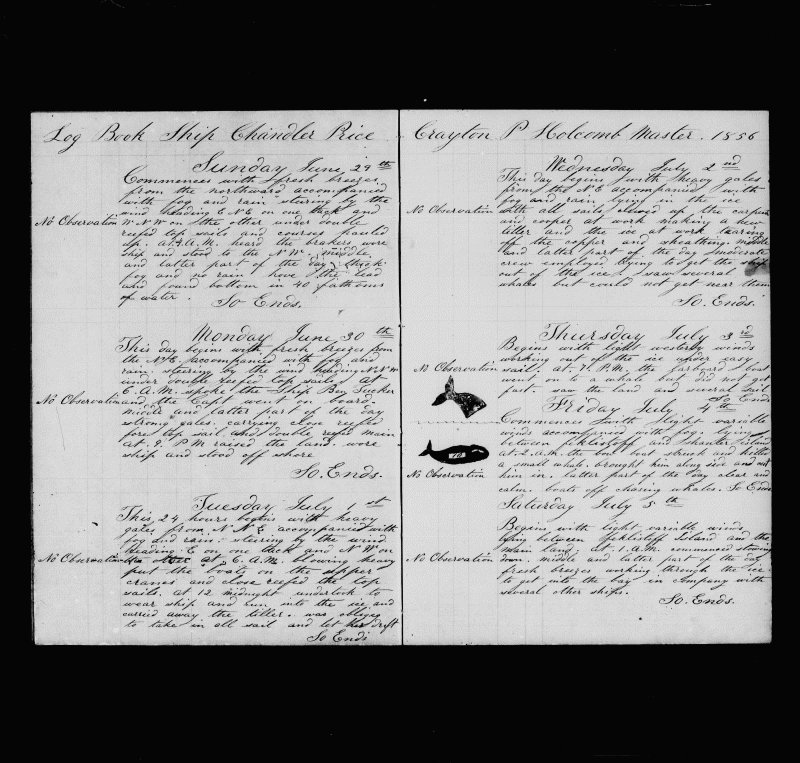 Log Book Ship Chandler Price
Sunday June 29th
Commences with fresh breezes
from the northward accompanied
with fog and rain steering by the
wind heading E N E on one tack and
No Observation W. N W on the other under double
reefed top sails and courses hauled
up. at 4. A.M. heard the brakers wore
ship and stood to the N W. middle
and latter part of the day thick
fog and no rain hove the lead
and found bottom in 40 fathoms
of water.
So Ends.
Monday June 30th
This day begins with fresh breezes from
the N.E. accompanied with fog and
rain. steering by the wind heading N. N W
under double reefed top sails at
6. A.M. spoke the Ship Ben Tucker
No Observation and the Capt went on board.
middle and latter part of the day
strong gales. carrying close reefed
fore top sail and double reefed main
at 9. P M raised the land. wore
ship and stood off shore
So. Ends.
Tuesday July 1st
This 24 hours begins with heavy
gales from N N E accompanied with
fog and rain. steering by the wind
heading E on one tack and N W on
No Observation the other at 6. A.M. blowing heavy
put the boats on the upper
cranes and close reefed the top
sails. at 12 midnight undertook to
wear ship and run into the ice and
carried away the tiller. was obliged
to take in all sail and let her drift
So Ends
Crayton P Holcomb Master. 1856
Wednesday July 2nd
This day begins with heavy gales
from the N E accompanied with
fog and rain lying in the ice
No Observation with all sail clewed up the carpen
and cooper at work making a new
tiller and the ice at work tearing
off the copper and sheathing. middle
and latter part of the day moderate
crew employed trying to get the ship
out of the ice. saw several
whales but could not get near them
So. Ends.
Thursday July 3rd
Begins with light westerly winds
working out of the ice under easy
No Observation sail. at 7. P.M. the larboard boat
went on to a whale but did not get
fast. saw the land and several sail
So Ends
Friday July 4th
Commences with light variable
winds accompanied with fog. lying
between feklistoff and shanter Island
at 2. a.m. the bow boat struck and killed
a small whale. brought him along side and cut
No Observation him in. latter part of the day clear and
calm. boats off chasing whales. So Ends
Saturday July 5th
Begins with light variable winds
lying between feklistoff Island and the
main land. at 1. A.M. commenced stowing
No Observation down. middle and latter part of the day
fresh breezes working through the ice
to get into the bay in company with
several other ships.
So. Ends.